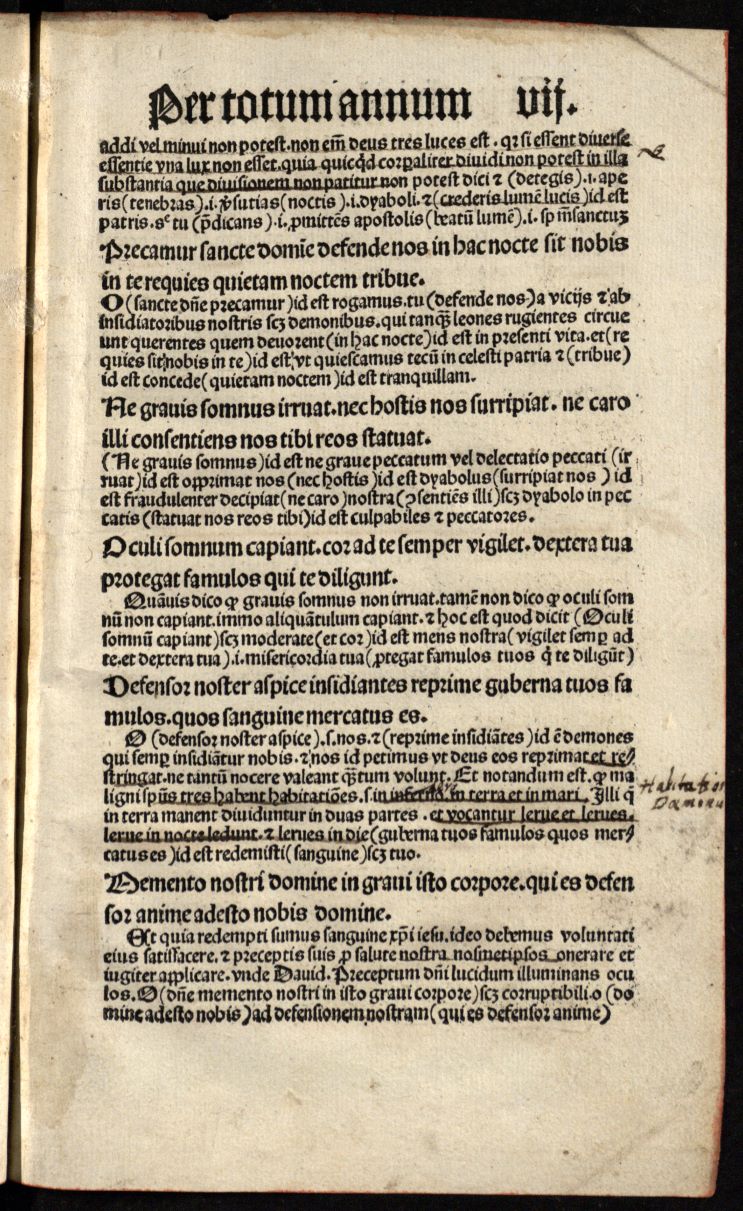 Per totum annum vij.
addi vel minui non potest. non em̄ deus tres luces est. qꝛ si essent diuerse
essentie vna lux non esset. quia quicq̇d corꝑaliter diuidi non potest in illa
substantia que diuisionem non patitur non potest dici ⁊ (detegis) .i. ape
ris (tenebras) .i. ꝑuersutias (noctis) .i. dyaboli. ⁊ (crederis lumē lucis) id est
patris. sꝫ tu (p̄dicans) .i. ꝓmittēs apostolis (beatū lumē) .i. sp̄m sanctuꝫ
Precamur sancte domīe defende nos in hac nocte sit nobis
in te requies quietam noctem tribue.
O (sancte dn̄e precamur) id est rogamus. tu (defende nos) a vicijs ⁊ ab
insidiatoribus nostris scꝫ demonibus. qui tanqꝫ leones rugientes circue
unt querentes quem deuorent (in hac nocte) id est in presenti vita. et (re
quies sit nobis in te) id est vt quiescamus tecū in celesti patria ⁊ (tribue)
id est concede (quietam noctem) id est tranquillam.
Ne grauis somnus irruat. nec hostis nos surripiat. ne caro
illi consentiens nos tibi reos statuat.
(Ne grauis somnus) id est ne graue peccatum vel delectatio peccati (ir
ruat) id est opprimat nos (nec hostis) id est dyabolus (surripiat nos) id
est fraudulenter decipiat (ne caro) nostra (ↄsentiēs illi) scꝫ dyabolo in pec
catis (statuat nos reos tibi) id est culpabiles ⁊ peccatores.
Oculi somnum capiant. cor ad te semper vigilet. dextera tua
protegat famulos qui te diligunt.
Quāuis dico ꝙ grauis somnus non irruat. tamē non dico ꝙ oculi som
nū non capiant. immo aliquātulum capiant. ⁊ hoc est quod dicit (Oculi
somnū capiant) scꝫ moderate (et cor) id est mens nostra (vigilet semꝑ ad
te. et dextera tua) .i. misericordia tua (ꝓtegat famulos tuos q̇ te diligūt)
Defensor noster aspice insidiantes reprime guberna tuos fa
mulos. quos sanguine mercatus es.
O (defensor noster aspice) .s. nos. ⁊ (reprime insidiātes) id ē demones
qui semꝑ insidiātur nobis. ⁊ nos id petimus vt deus eos reprimat et re/
stringat. ne tantū nocere valeant qꝫtum volunt. Et notandum est. ꝙ ma
ligni sp̄us tres habent habitatiōes. s. in inferno. in terra et in mari. Illi q̇
in terra manent diuiduntur in duas partes. et vocantur lerue et lerues.
lerue in nocte ledunt. ⁊ lerues in die (guberna tuos famulos quos mer/
catus es) id est redemisti (sanguine) scꝫ tuo.
Habitation
Dæmonū
Memento nostri domine in graui isto corpore. qui es defen
sor anime adesto nobis domine.
Est quia redempti sumus sanguine xp̄i iesu. ideo debemus voluntati
eius satisfacere. ⁊ preceptis suis ꝓ salute nostra nosmetipsos onerare et
iugiter applicare. vnde Dauid. Preceptum dn̄i lucidum illuminans ocu
los. O (dn̄e memento nostri in isto graui corpore) scꝫ corruptibili. o (do
mine adesto nobis) ad defensionem nostram (qui es defensor anime)